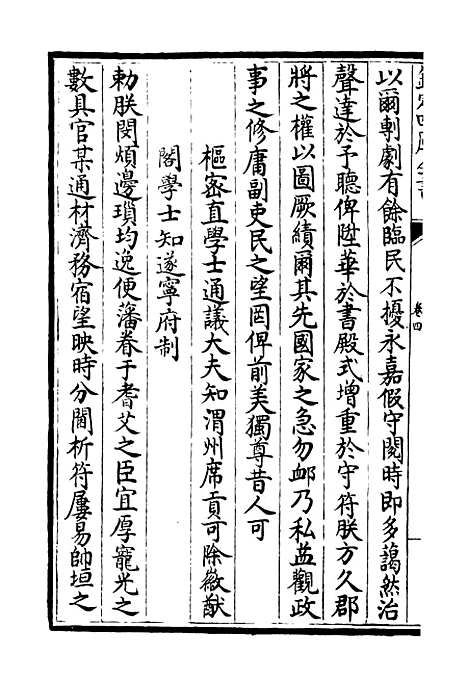 以爾剸劇有餘臨民不擾永嘉假守閱時即多藹然治
聲達於予聽俾陞華於書殿式增重於守符朕方久郡
將之權以圖厥績爾其先國家之急勿䘏乃私益觀政
事之修庸副吏民之望罔俾前美獨尊昔人可
樞密直學士通議大夫知渭州席貢可除徽猷
閣學士知遂寧府制
勅朕閔煩邊瑣均逸便藩眷于耆艾之臣宜厚寵光之
數具官某通材濟務宿望映時分閫析符屢易帥垣之
卷四